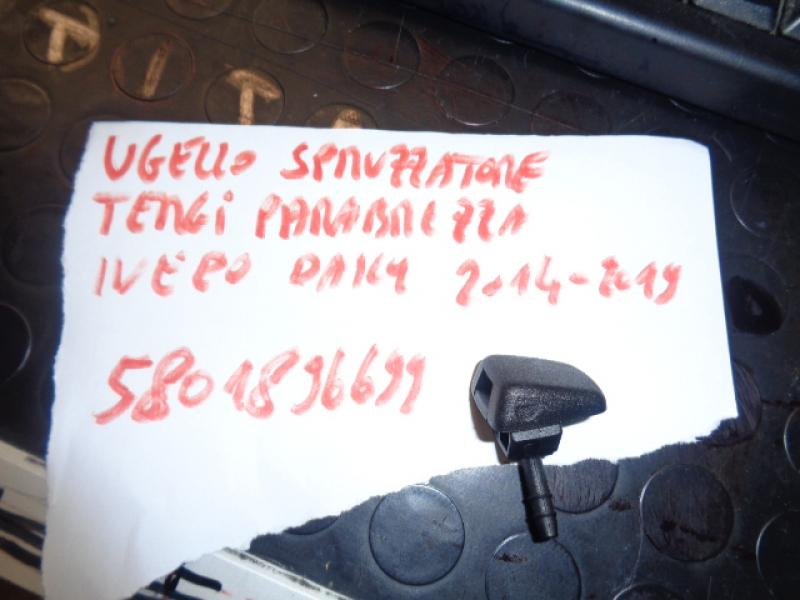 TITI
UGELLO SPRUZZATORE
TERGI PARABREZZA
IVECO DAILY 2014-2019
5801896699